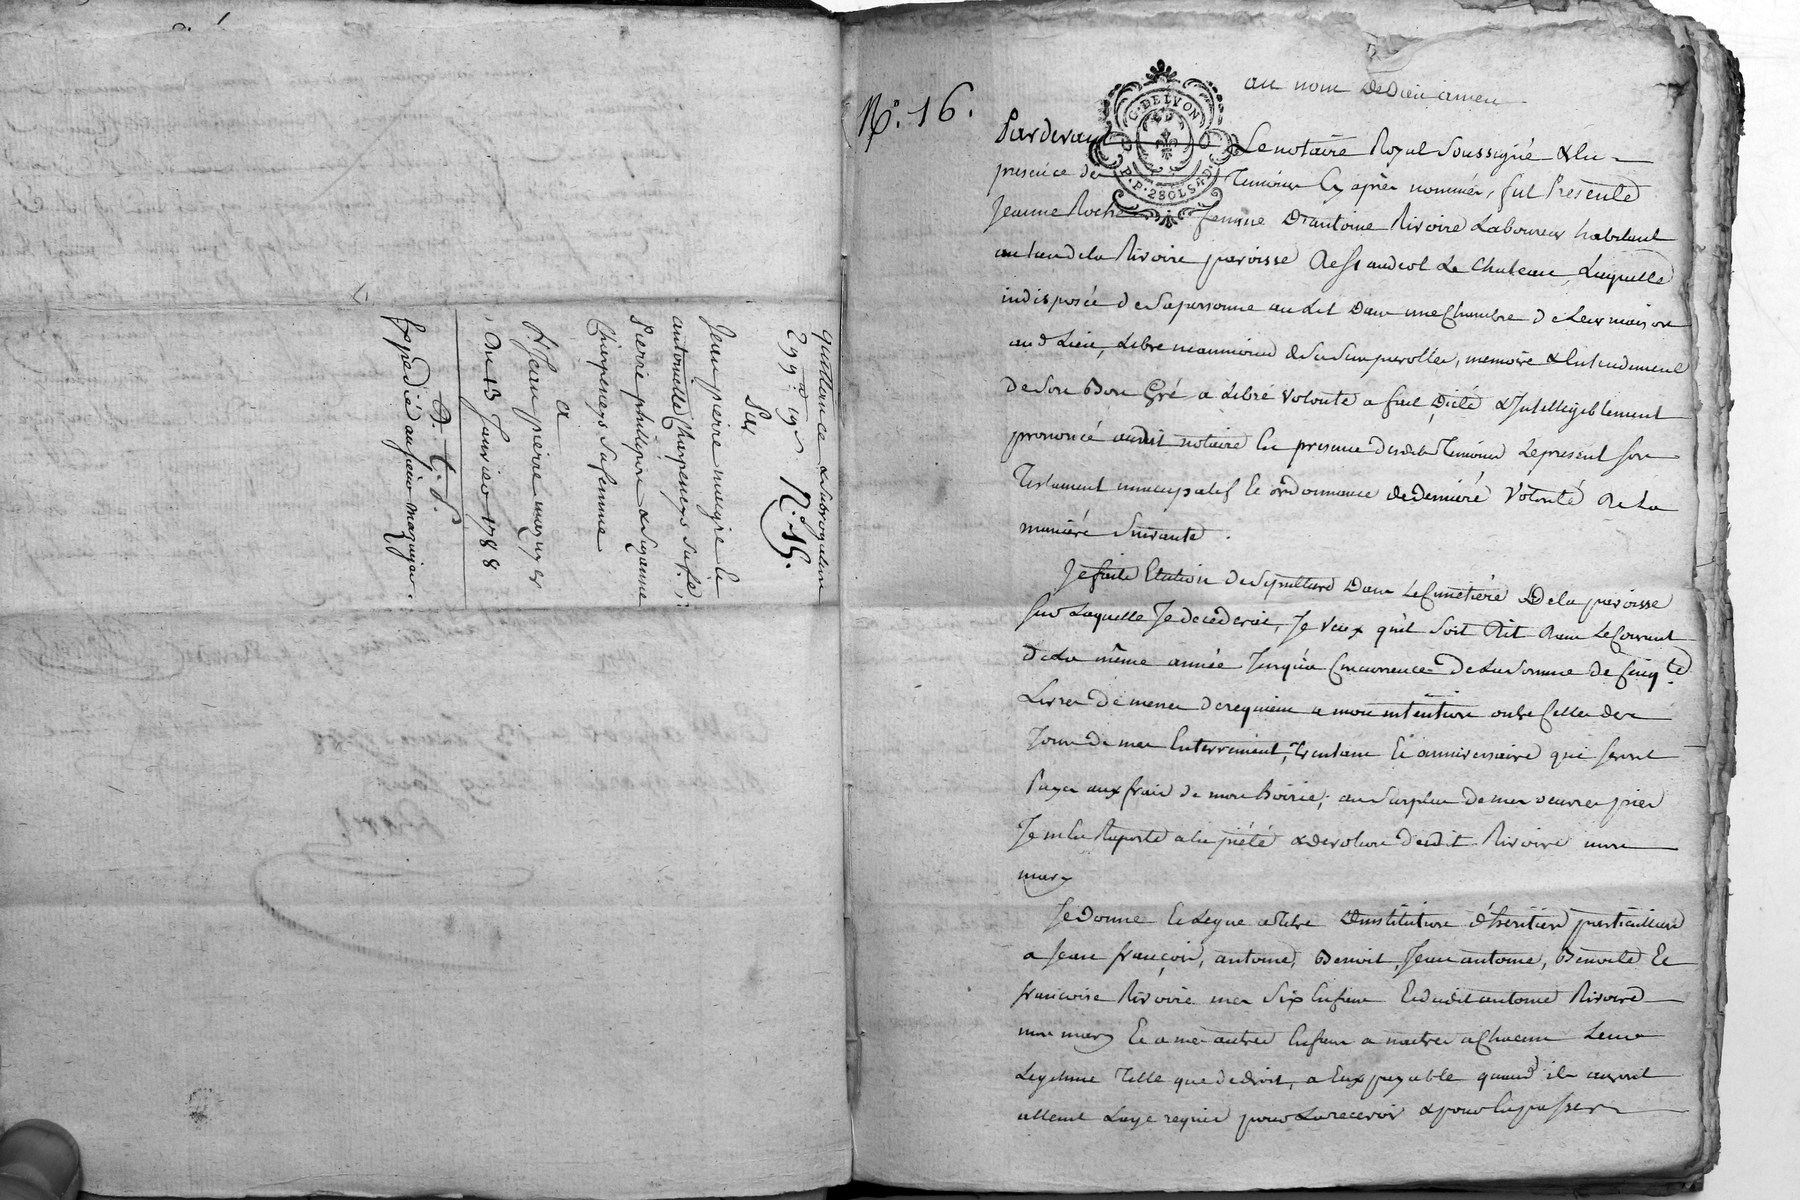 quittance & subrogation
299# 19s N.o 15.
Par
Jean pierre maigre et
antoinette Charpeneys sa fe,
Pierre philippon & Suzanne
Charpeneys sa femme
a
Sr. Jean pierre
Du 13 Janvier 1788
Expedié au sieur
N.o 16.
au nom de Dieu amen
C. DE LYON
D. P. 2 SOLS 4 D.
Pardevant Le notaire Royal soussigné & en
presence des Temoins Cy après nommés, fut Presente
Jeanne Roche femme D'antoine Rivoire Laboureur habitant
au lieu de la Rivoire paroisse de St andeol Le Chateau, Laquelle
indisposée de sa personne au Lit dans une Chambre de Leur maison
aud Lieu, Libre neanmoins de ses sens parolle, memoire & Entendement
de son Bon Gré a Libre volonté a fait, Dicté & Intelligiblement
prononcé audit notaire En presence desdits Temoins Le present son
Testament nuncupatif Et ordonnance de Derniere Volonté De La
maniere Suivante.
Je faits Election de sepulture Dans Le Cimetiere De la paroisse
sur Laquelle Je decederai, Je veux qu'il soit Dit Dans Le Courant
de La même année Jusqu'a Concurrence De La Somme de Cinqte
Livres De messes de requiem a mon intention outre Celles des
Jours De mes Enterrement, trentain Et anniversaire qui seront
Payes aux frais de mon hoirie; au surplus De mes oeuvres pies
Je m'En Raporte a la piété & devotion dudit Rivoire mon
mary
Je Donne Et Legue a titre D'institution d'heritiers particuliers
a Jean françois, antoine, Benoit, Jean antoine, Benoite Et
francoise Rivoire mes Six Enfans Et dudit antoine Rivoire
mon mary Et a mes autres Enfans a naitre a Chacun Leur
Legitime Telle que de droit, a Eux payable quand ils auront
atteint L'age requis pour La recevoir & pour En passer